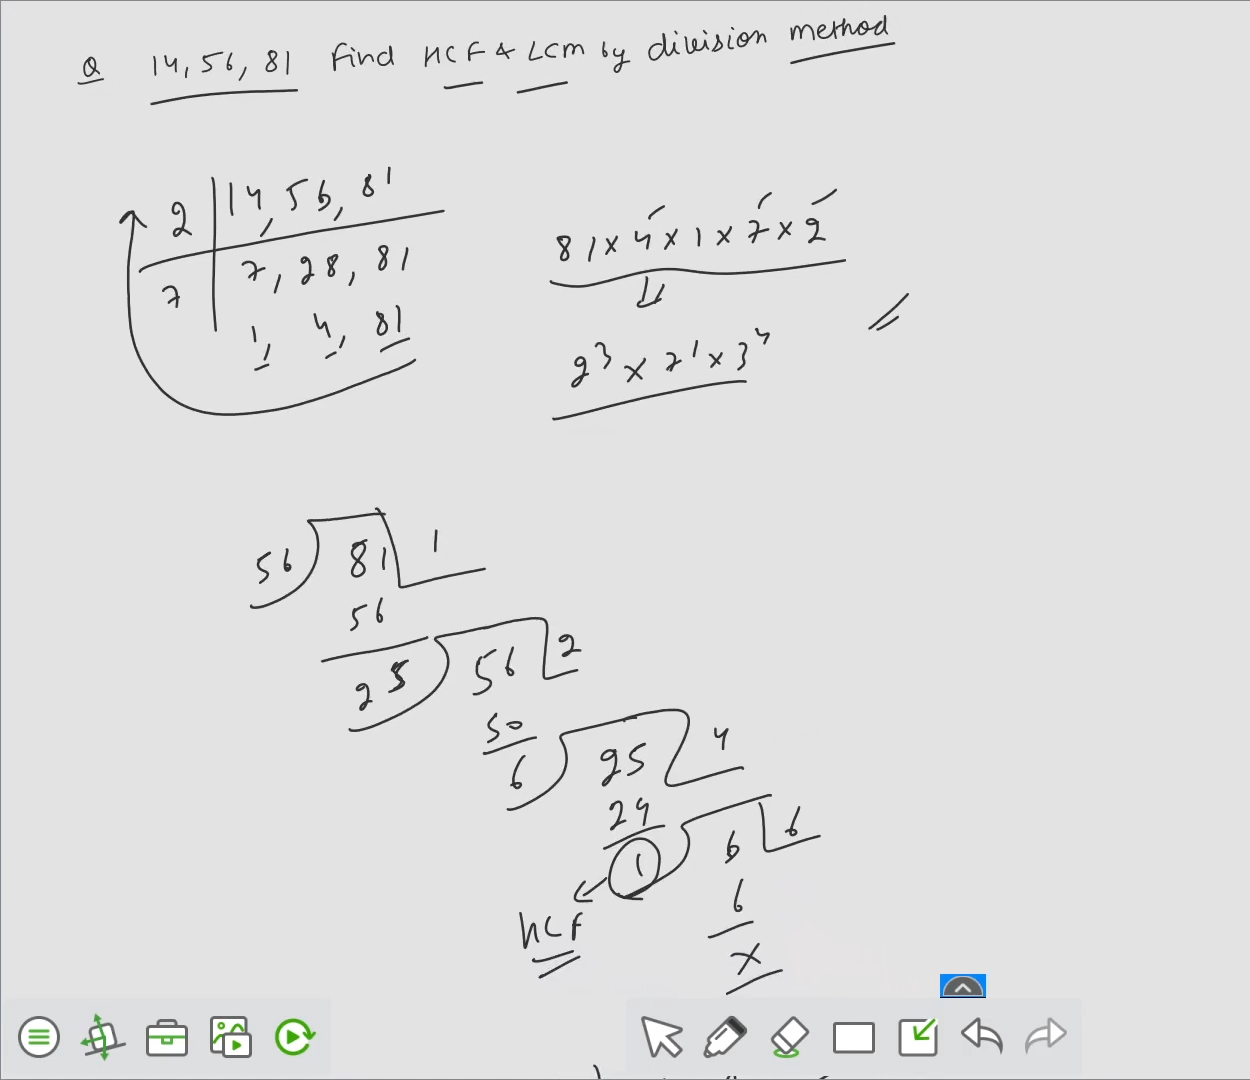 Q 14, 56, 81 find HCF & LCM by division method
2 14, 56, 81
7 7, 28, 81
1, 4, 81
81 x 4 x 1 x 7 x 2
2³ x 7¹ x 3⁴
56 81 1
56
25 56 2
50
6 25 4
24
1 6 6
6
x
HCF